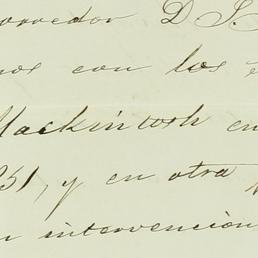 corredor D. S.
nos con los
Mackintosh en
251, y en otra
intervención